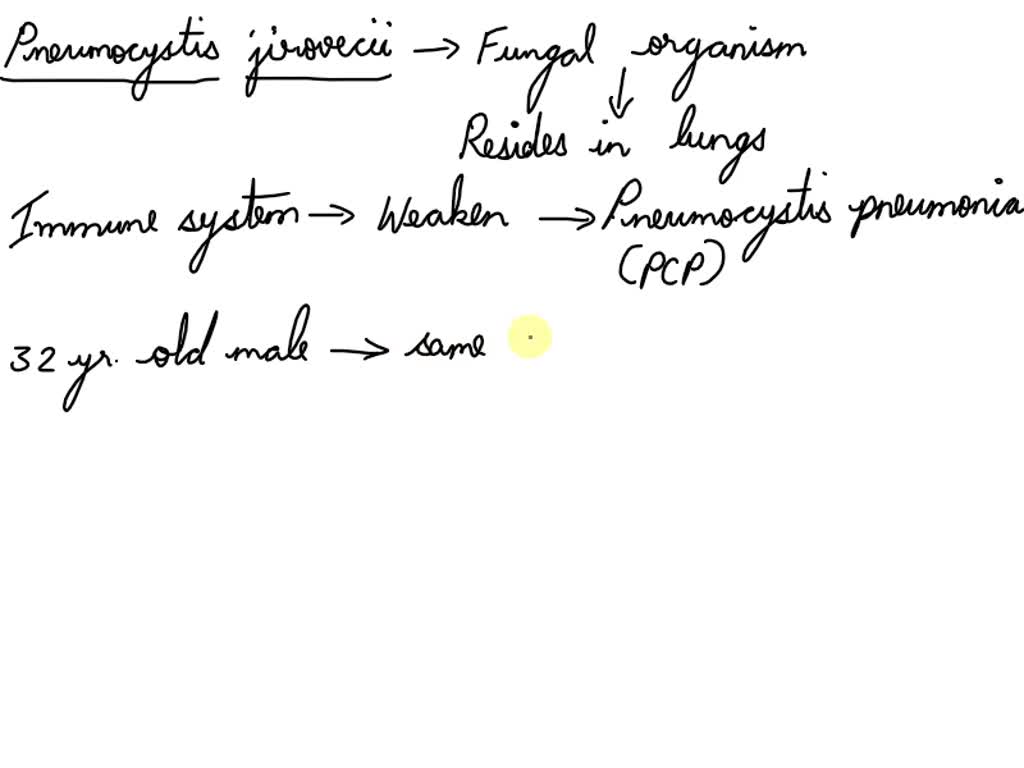 Pneumocystis jirovecii → Fungal organism
↓
Resides in lungs
Immune system → Weaken → Pneumocystis pneumonia
(PCP)
32 yr. old male → same